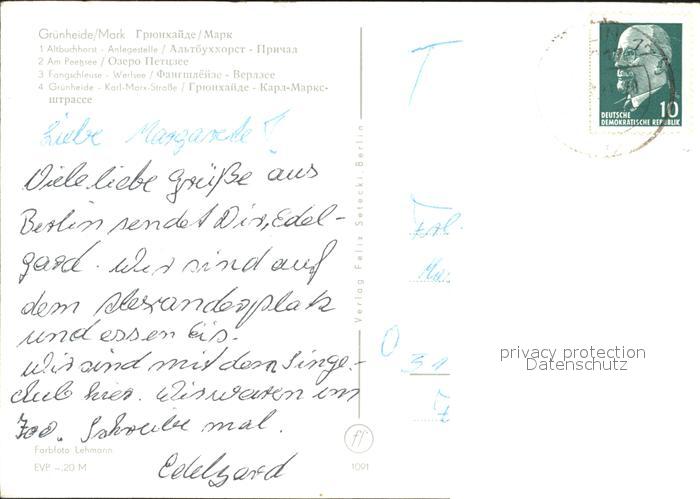 Grünheide/Mark Грюнхайде/Марк
1 Altbuchhorst - Anlegestelle / Альтбуххорст - Причал
2 Am Peetzsee / Озеро Петцзее
3 Fangschleuse - Werlsee / Фангшлёйзе - Верлзее
4 Grünheide - Karl-Marx-Straße / Грюнхайде - Карл-Маркс-
штрассе
Liebe Margarete!
Viele liebe Grüße aus
Berlin sendet Dir, Edel-
gard. Wir sind auf
dem Alexanderplatz
und essen Eis.
Wir sind mit dem Singe-
club hier. Wir waren im
Zoo. Schreibe mal.
Edelgard
Farbfoto Lehmann
EVP -.20 M
1091
Verlag Felix Setecki, Berlin
ff
T
Frl.
Ma
O
31
DEUTSCHE
DEMOKRATISCHE REPUBLIK
10
privacy protection
Datenschutz